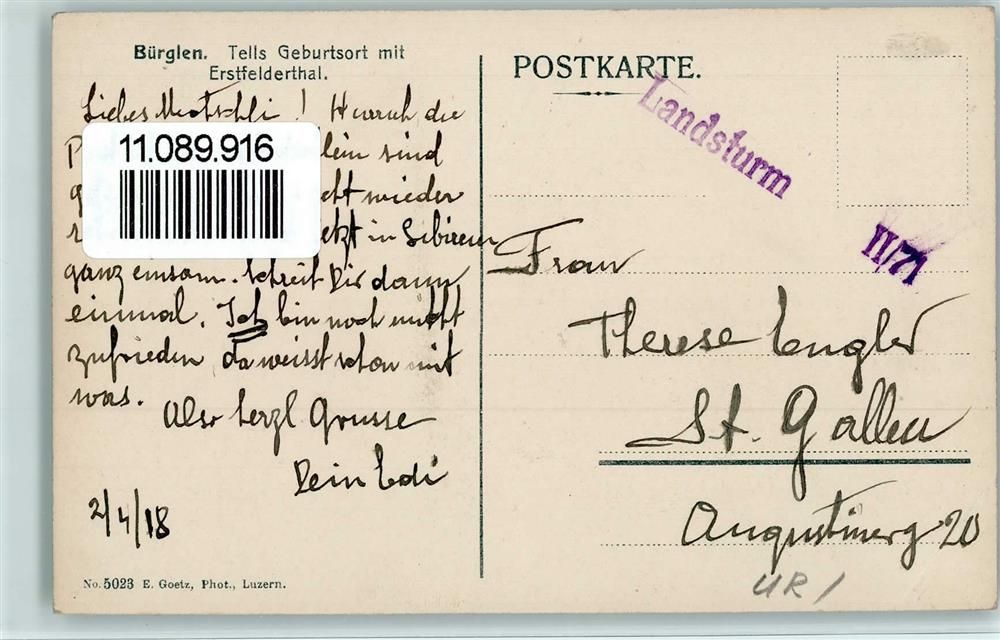 Bürglen. Tells Geburtsort mit
Erstfelderthal.
Liebes Muotschli! Hurrah, die
P lein sind
g wieder
etzt in Sibirien
ganz einsam. Schreib Dir dann
einmal. Ich bin noch nicht
zufrieden, du weisst schon mit
was.
Also herzl. Grüsse
Dein Edi
2/4/18
No. 5023 E. Goetz, Phot., Luzern.
11.089.916
POSTKARTE.
Landsturm
II/71
Frau
Therese Engler
St. Gallen
Augustinerg 20
UR /